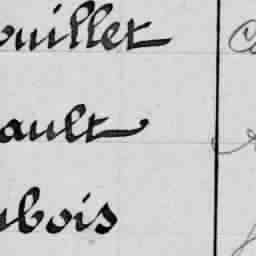 ouillet
ault
ubois